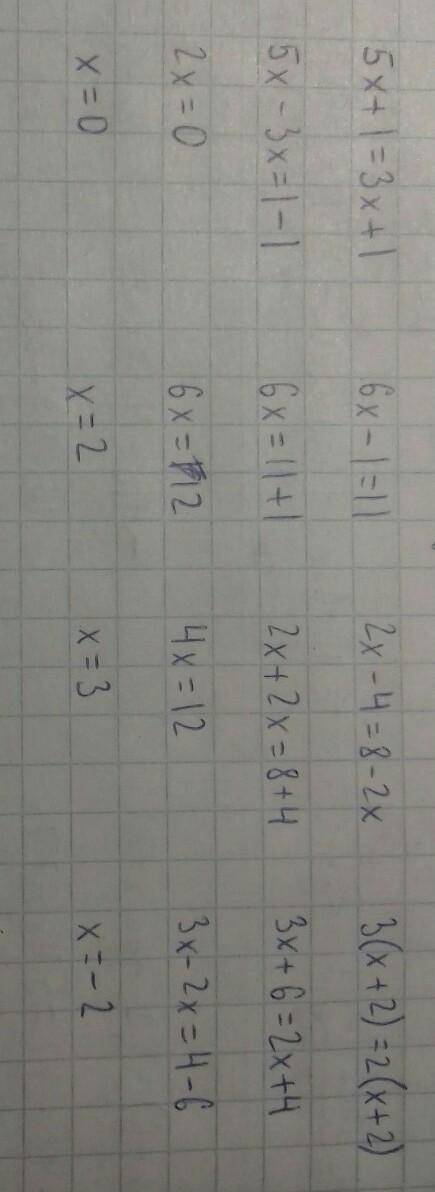 5x+1=3x+1
5x-3x=1-1
2x=0
x=0
6x-1=11
6x=11+1
6x=12
x=2
2x-4=8-2x
2x+2x=8+4
4x=12
x=3
3(x+2)=2(x+2)
3x+6=2x+4
3x-2x=4-6
x=-2